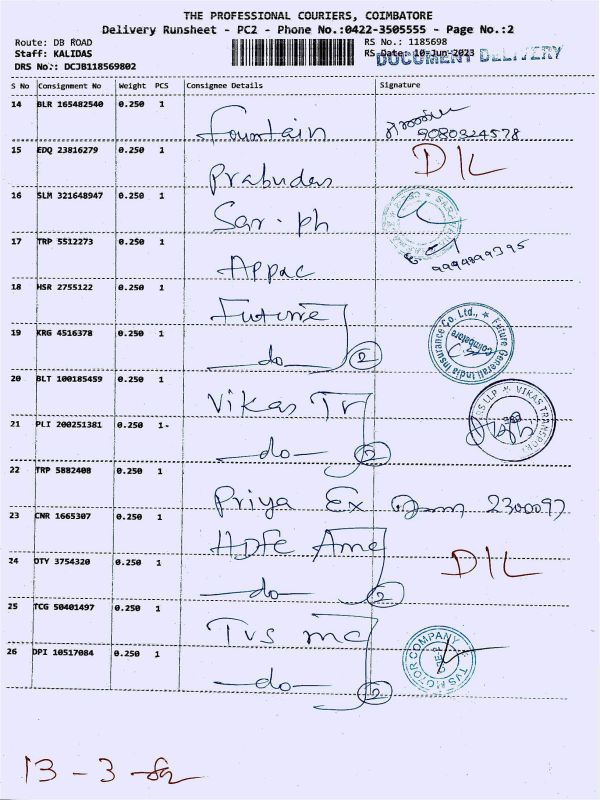 THE PROFESSIONAL COURIERS, COIMBATORE
Delivery Runsheet - PC2 - Phone No.:0422-3505555 - Page No.:2
Route: DB ROAD
RS No.: 1185698
Staff: KALIDAS
RS Date: 10-Jun-2023
DOCUMENT DELIVERY
DRS No.: DCJB118569802
S No Consignment No Weight PCS Consignee Details Signature
14 BLR 165482540 0.250 1 Fountain
9080324578
15 EDQ 23816279 0.250 1 Prabudas D/L
16 SLM 321648947 0.250 1 Sar. ph
17 TRP 5512273 0.250 1 Appac 9994899395
18 HSR 2755122 0.250 1 Future
Future Generali India Insurance Co. Ltd., Coimbatore
19 KRG 4516378 0.250 1 -do- 2
20 BLT 100185459 0.250 1 Vikas Tr
VIKAS TRANSPORT
21 PLI 200251381 0.250 1- -do- 2
22 TRP 5882408 0.250 1 Priya Ex 2300097
23 CNR 1665307 0.250 1 HDFC Ame
24 OTY 3754320 0.250 1 -do- 2 D/L
25 TCG 50401497 0.250 1 TVS mc
TVS MOTOR COMPANY
26 DPI 10517084 0.250 1 -do- 2
13 - 3 -